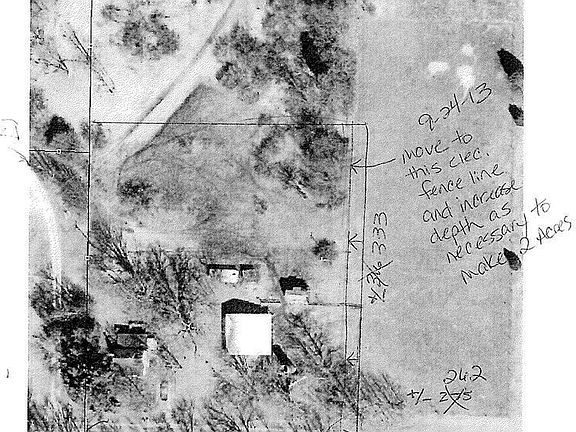 9-24-13
move to
this elec.
fence line
and increase
depth as
necessary to
make 2 Acres
+/- 333
242
+/- 275